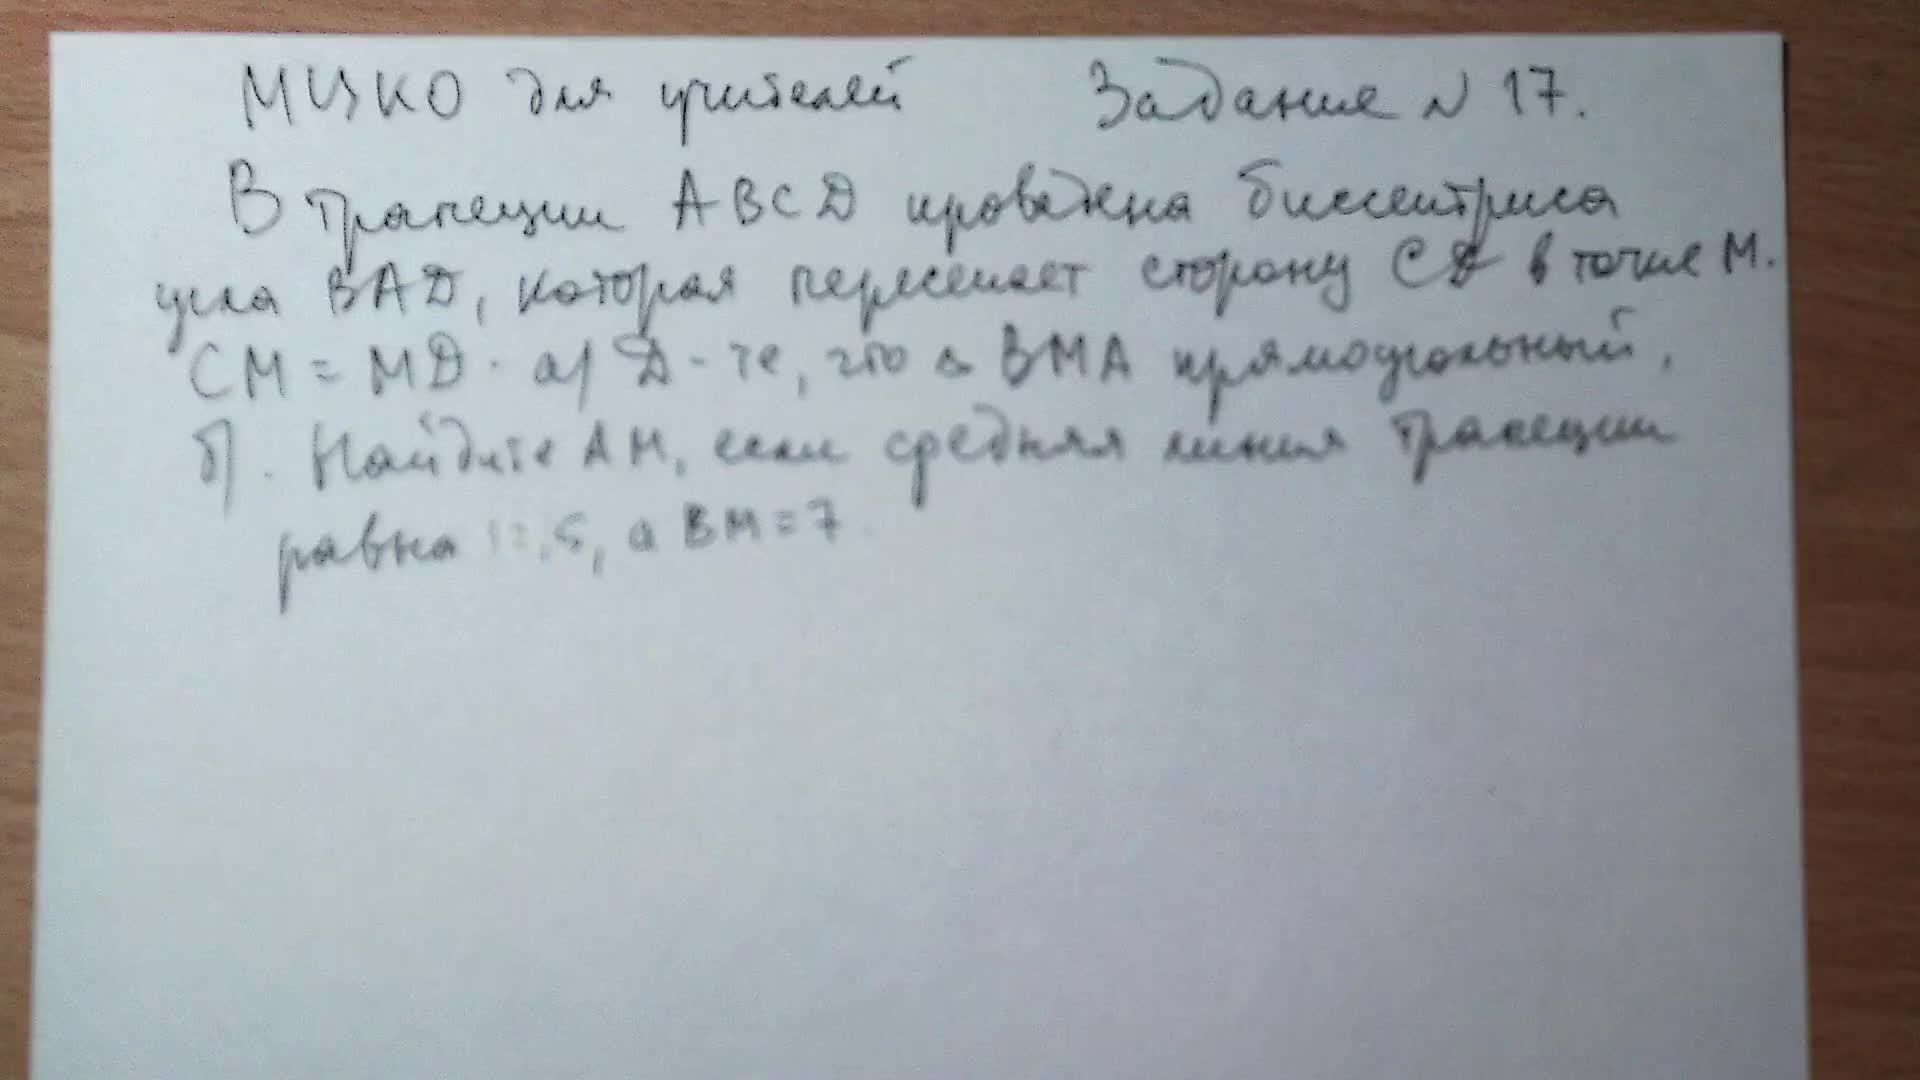 МЦКО для учителей Задание N 17.
В трапеции ABCD проведена биссектриса
угла BAD, которая пересекает сторону CD в точке M.
CM = MD. а) Д-те, что Δ BMA прямоугольный,
б). Найдите AM, если средняя линия трапеции
равна а BM = 7